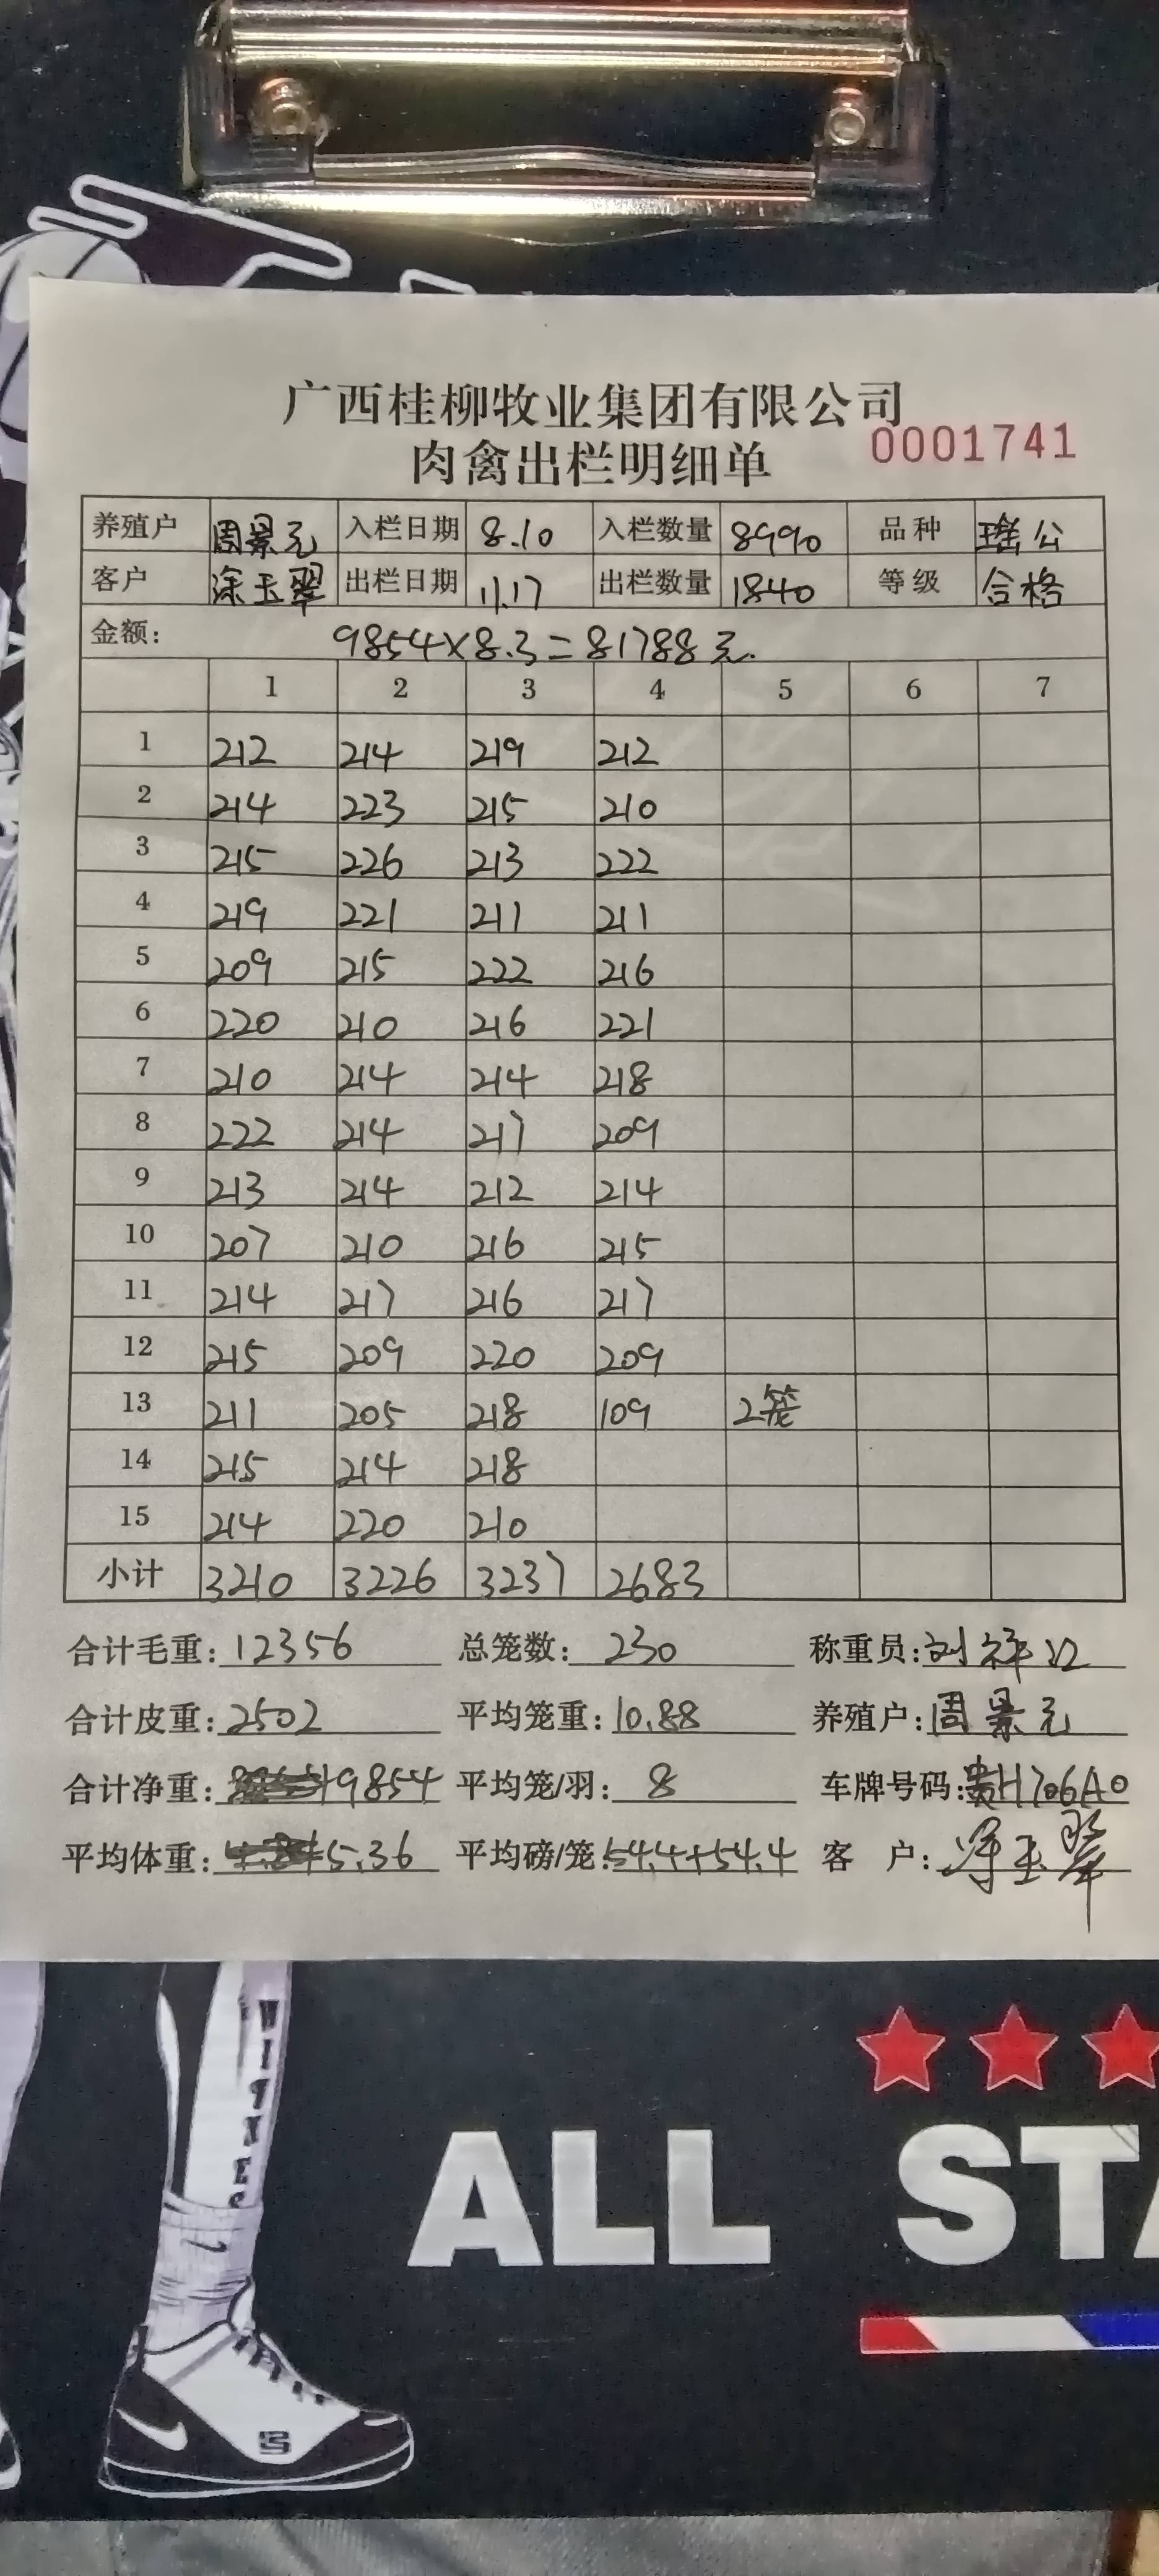 广西桂柳牧业集团有限公司
肉禽出栏明细单 0001741
养殖户 周景元 入栏日期 8.10 入栏数量 8990 品种 瑶公
客户 涂玉翠 出栏日期 11.17 出栏数量 1840 等级 合格
金额: 9854×8.3=81788元.
1 2 3 4 5 6 7
1 212 214 219 212
2 214 223 215 210
3 215 226 213 222
4 219 221 211 211
5 209 215 222 216
6 220 210 216 221
7 210 214 214 218
8 222 214 217 209
9 213 214 212 214
10 207 210 216 215
11 214 217 216 217
12 215 209 220 209
13 211 205 218 109 2笼
14 215 214 218
15 214 220 210
小计 3210 3226 3237 2683
合计毛重: 12356 总笼数: 230 称重员: 刘祥江
合计皮重: 2502 平均笼重: 10.88 养殖户: 周景元
合计净重: 9854 平均笼/羽: 8 车牌号码: 贵H706A0
平均体重: 5.36 平均磅/笼: 54.4+54.4 客户: 涂玉翠
ALL STA